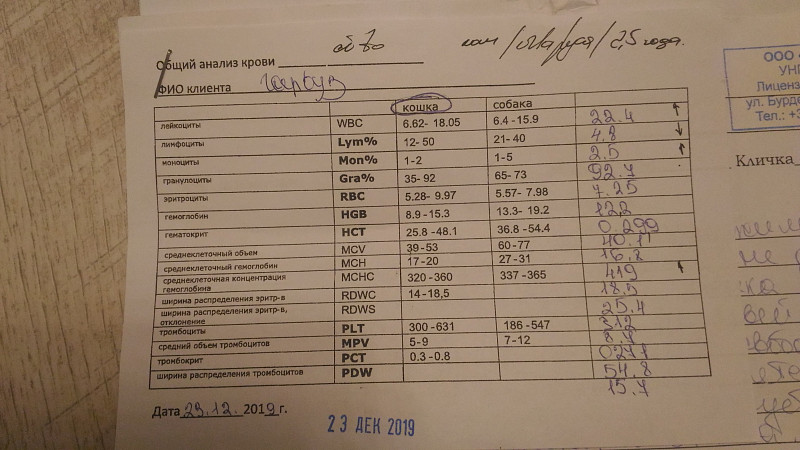 Общий анализ крови
кот / / 2,5 года.
ФИО клиента Гарбуз
кошка собака
лейкоциты WBC 6.62- 18.05 6.4 -15.9 22.4 ↑
лимфоциты Lym% 12- 50 21- 40 4.8 ↓
моноциты Mon% 1-2 1-5 2.5 ↑
гранулоциты Gra% 35- 92 65- 73 92.7
эритроциты RBC 5.28- 9.97 5.57- 7.98 7.25
гемоглобин HGB 8.9 -15.3 13.3- 19.2 12,2
гематокрит HCT 25.8 -48.1 36.8 -54.4 0.299
среднеклеточный объем MCV 39-53 60-77 40.1
среднеклеточный гемоглобин MCH 17-20 27-31 16.2
среднеклеточная концентрация гемоглобина MCHC 320-360 337 -365 419
ширина распределения эритр-в RDWC 14-18,5 18,5
ширина распределения эритр-в, отклонение RDWS 25.4
тромбоциты PLT 300 -631 186 -547 312
средний объем тромбоцитов MPV 5-9 7-12
тромбокрит PCT 0.3 -0.8
ширина распределения тромбоцитов PDW 54.8
15.7
Дата 23.12. 2019 г.
23 ДЕК 2019
ООО
УНР
Лиценз
ул. Бурде
Тел.: +3
Кличка